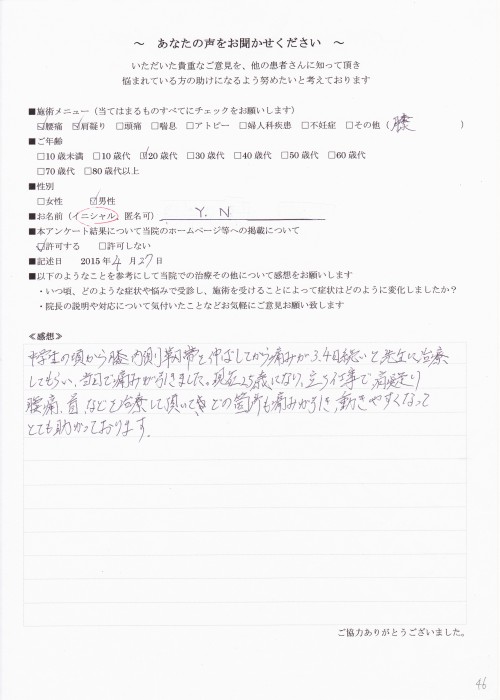 ～ あなたの声をお聞かせください ～
いただいた貴重なご意見を、他の患者さんに知って頂き
悩まれている方の助けになるよう努めたいと考えております
■施術メニュー（当てはまるものすべてにチェックをお願いします）
☑腰痛 ☑肩凝り □頭痛 □喘息 □アトピー □婦人科疾患 □不妊症 □その他（膝 ）
■ご年齢
□10歳未満 □10歳代 ☑20歳代 □30歳代 □40歳代 □50歳代 □60歳代
□70歳代 □80歳代以上
■性別
□女性 ☑男性
■お名前（イニシャル、匿名可） Y. N
■本アンケート結果について当院のホームページ等への掲載について
☑許可する □許可しない
■記述日 2015年4月27日
■以下のようなことを参考にして当院での治療その他について感想をお願いします
・いつ頃、どのような症状や悩みで受診し、施術を受けることによって症状はどのように変化しましたか？
・院長の説明や対応について気付いたことなどお気軽にご意見お願い致します
≪感想≫
中学生の頃から膝内側靭帯を伸ばしてから痛みが3、4日続いと先生に治療
してもらい、当日で痛みが引きました。現在25歳になり、立ち仕事で肩凝り
腰痛、首、などを治療して頂いてどの箇所も痛みが引き、動きやすくなって
とても助かっております。
ご協力ありがとうございました。
46